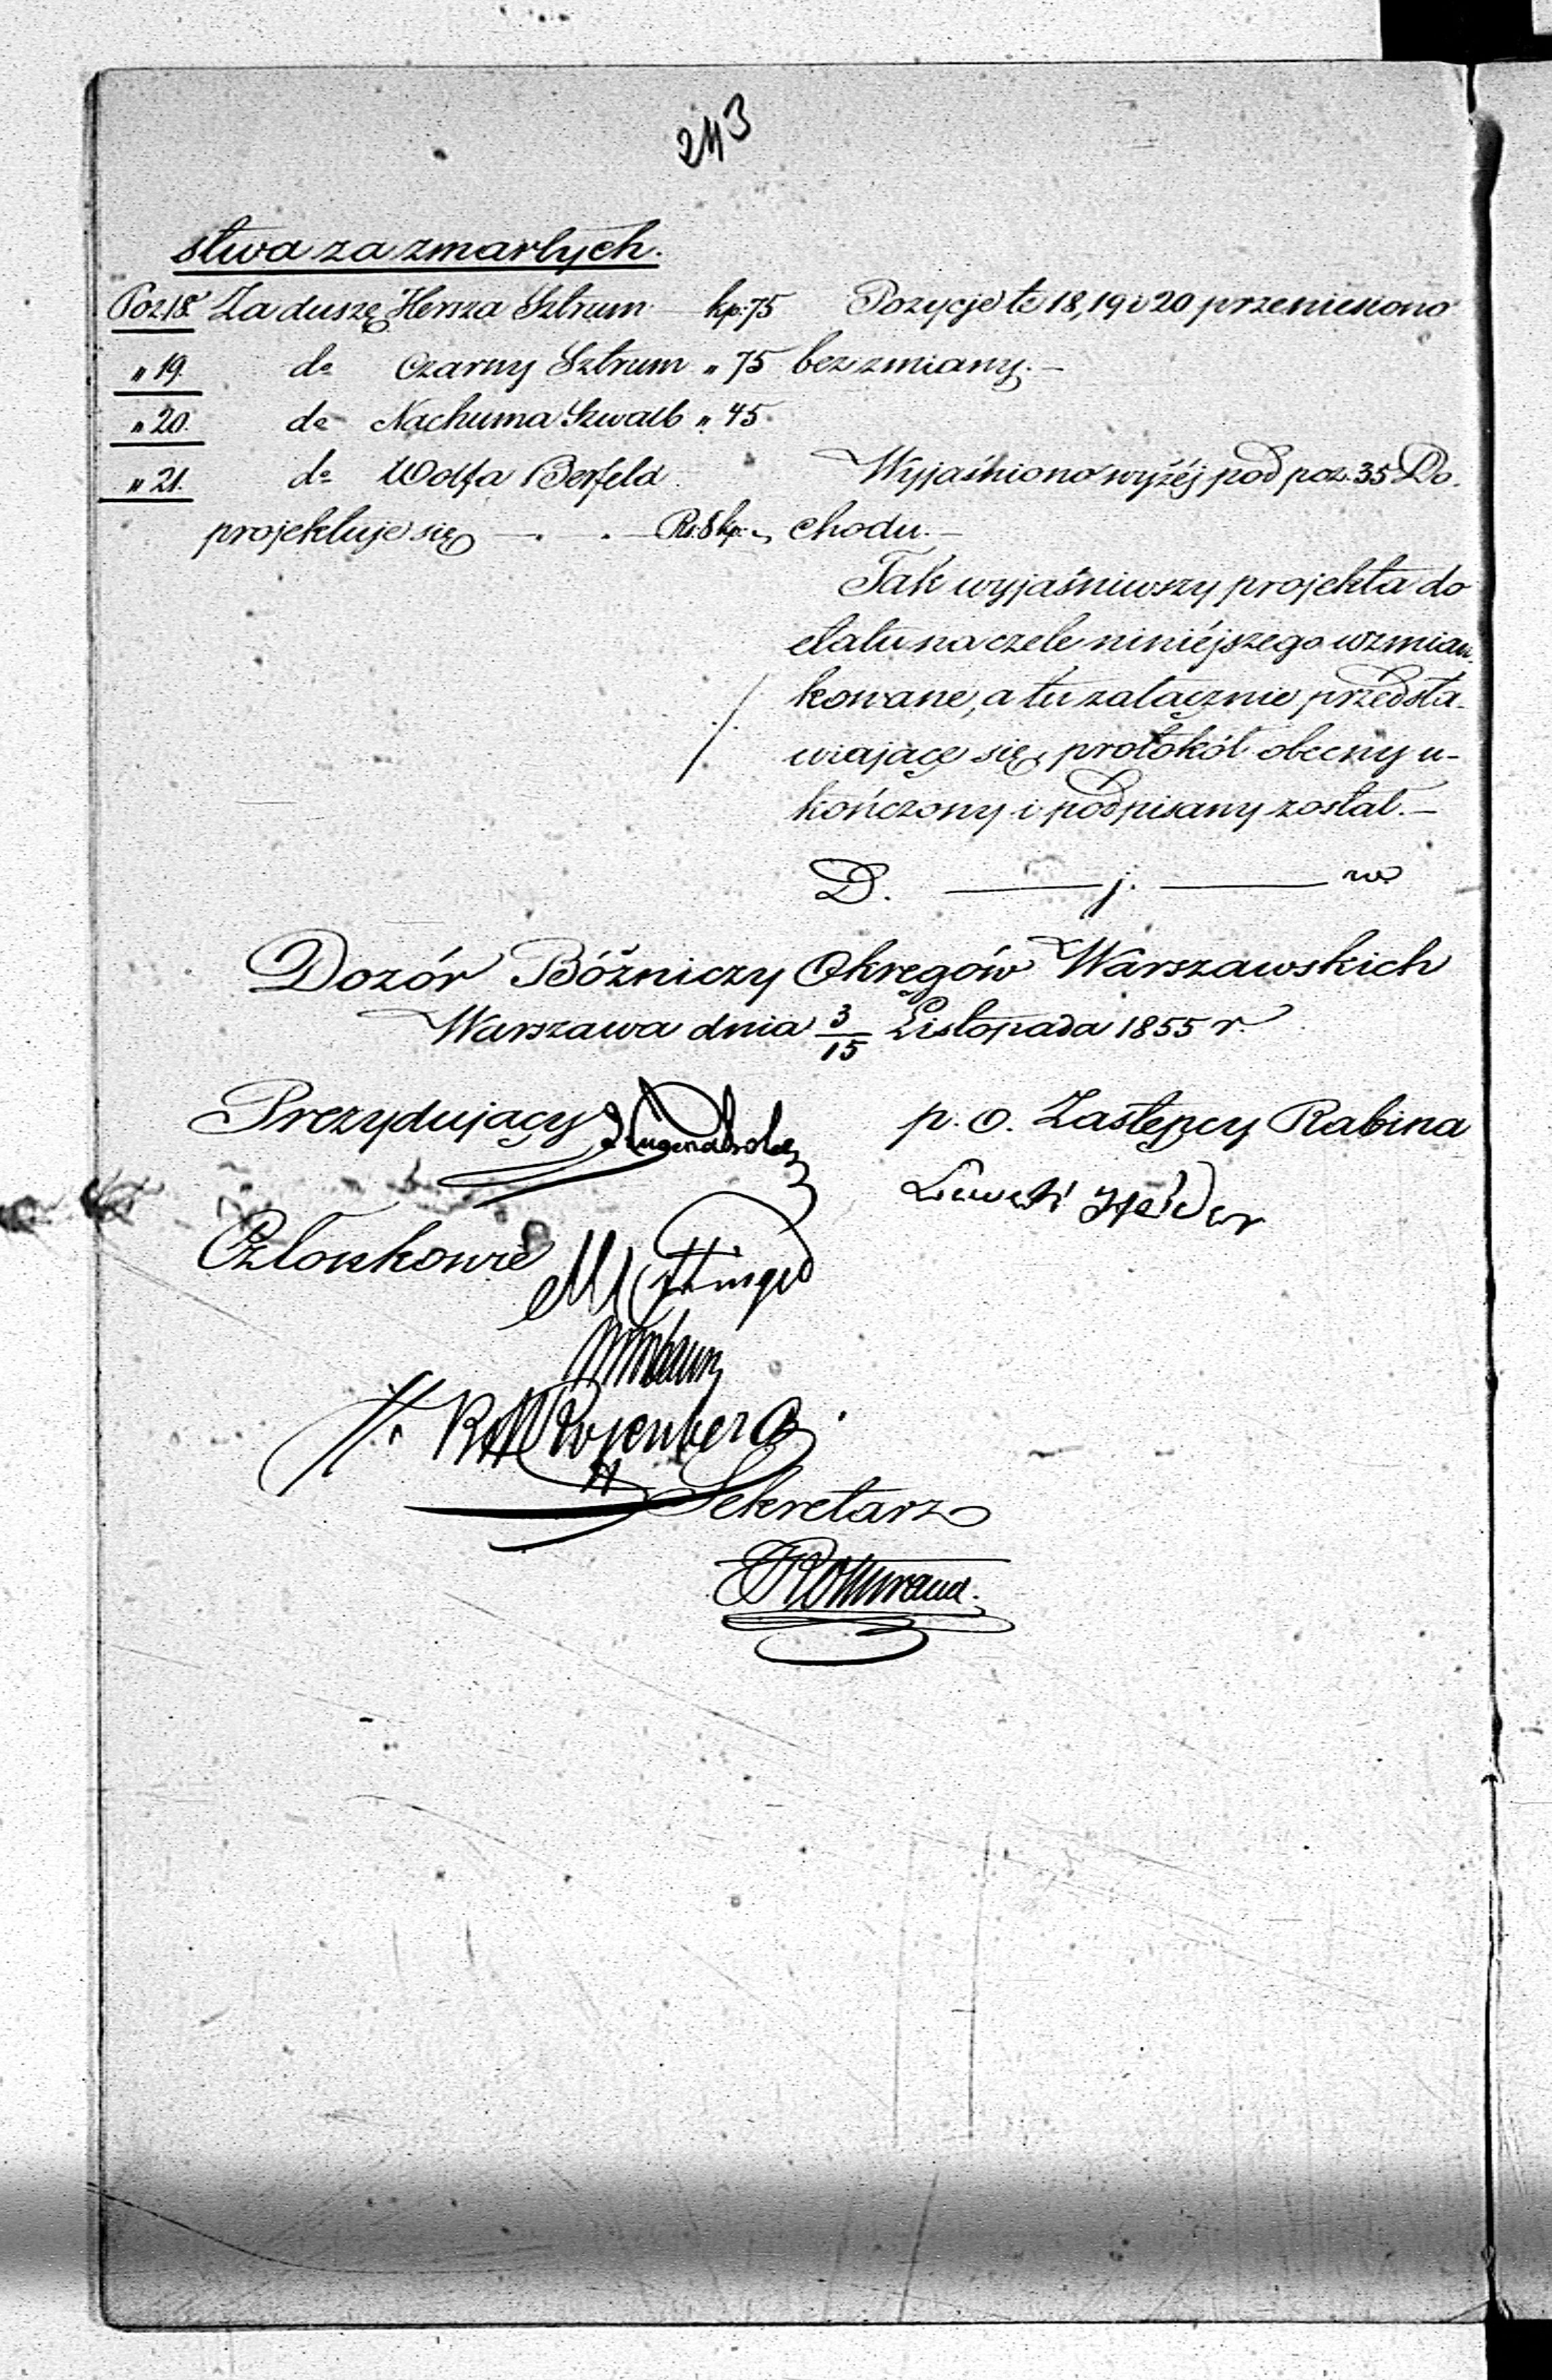 243
stwa za zmarłych.
Poz. 18. Za duszę Hersza Sztrum kp: 75 Pozycje te 18, 19 i 20 przeniesiono
" 19. do Czarny Sztrum " 75 bez zmiany. —
" 20. do Nachuma Szwalb " 45
" 21. do Wolfa Berfeld. Wyjaśniono wyżéj pod poz. 35 Do-
projektuje się — . . — Rs: 8 kp: " chodu. —
Tak wyjaśniwszy projekta do
etatu na czele niniéjszego wzmian-
kowane, a tu załącznie przedsta-
wiające się, protokół obecny u-
kończony i podpisany został. —
D. — j. — w.
Dozór Bóżniczy Okręgów Warszawskich
Warszawa dnia 3/15 Listopada 1855 r.
Prezydujący p. o. Zastępcy Rabina
Członkowie
Rosenberg
Sekretarz